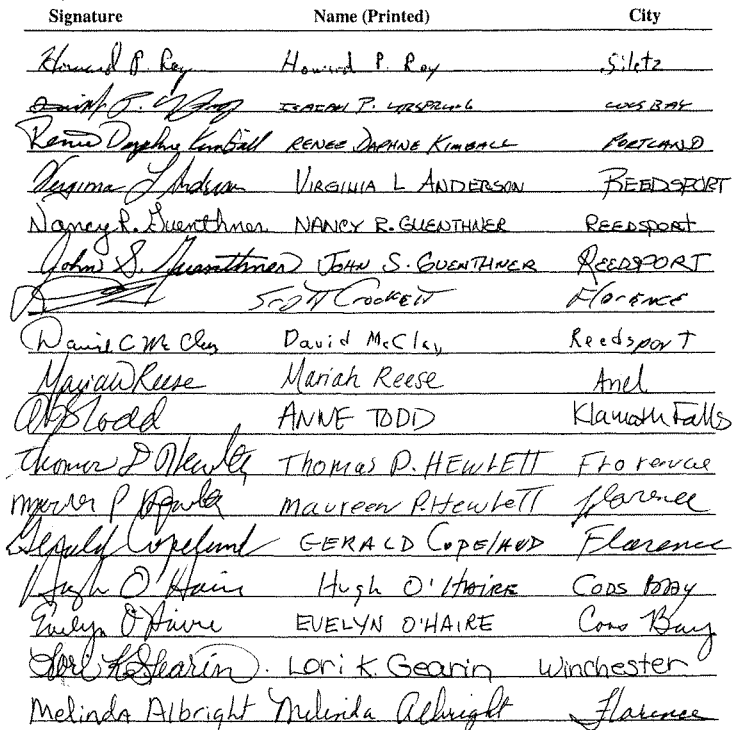 Signature Name (Printed) City
Howard P. Roy Howard P. Roy Siletz
ISAIAH P. URSPRUNG COOS BAY
Renee Daphne Kimball RENEE DAPHNE KIMBALL PORTLAND
Virginia L Anderson VIRGINIA L ANDERSON REEDSPORT
Nancy R. Guenthner NANCY R. GUENTHNER REEDSPORT
John S. Guenthner JOHN S. GUENTHNER REEDSPORT
Scott Crockett Florence
David C McClay David McClay Reedsport
Mariah Reese Mariah Reese Ariel
Todd ANNE TODD Klamath Falls
Thomas D Hewlett Thomas D. HEWLETT Florence
Maureen P Hewlett Maureen P. Hewlett florence
Gerald Copeland GERALD COPELAND Florence
Hugh O'Haire Hugh O'HAIRE COOS BAY
Evelyn O'Haire EVELYN O'HAIRE Coos Bay
Lori K Gearin Lori K. Gearin Winchester
Melinda Albright Melinda Albright Florence